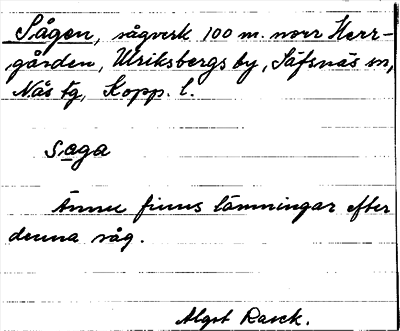 Sågen, sågverk 100 m. norr Herr-
gården, Ulriksbergs by, Säfsnäs sn,
Nås tg, Kopp. l.
saga
Ännu finns lämningar efter
denna såg.
Algot Rasck.